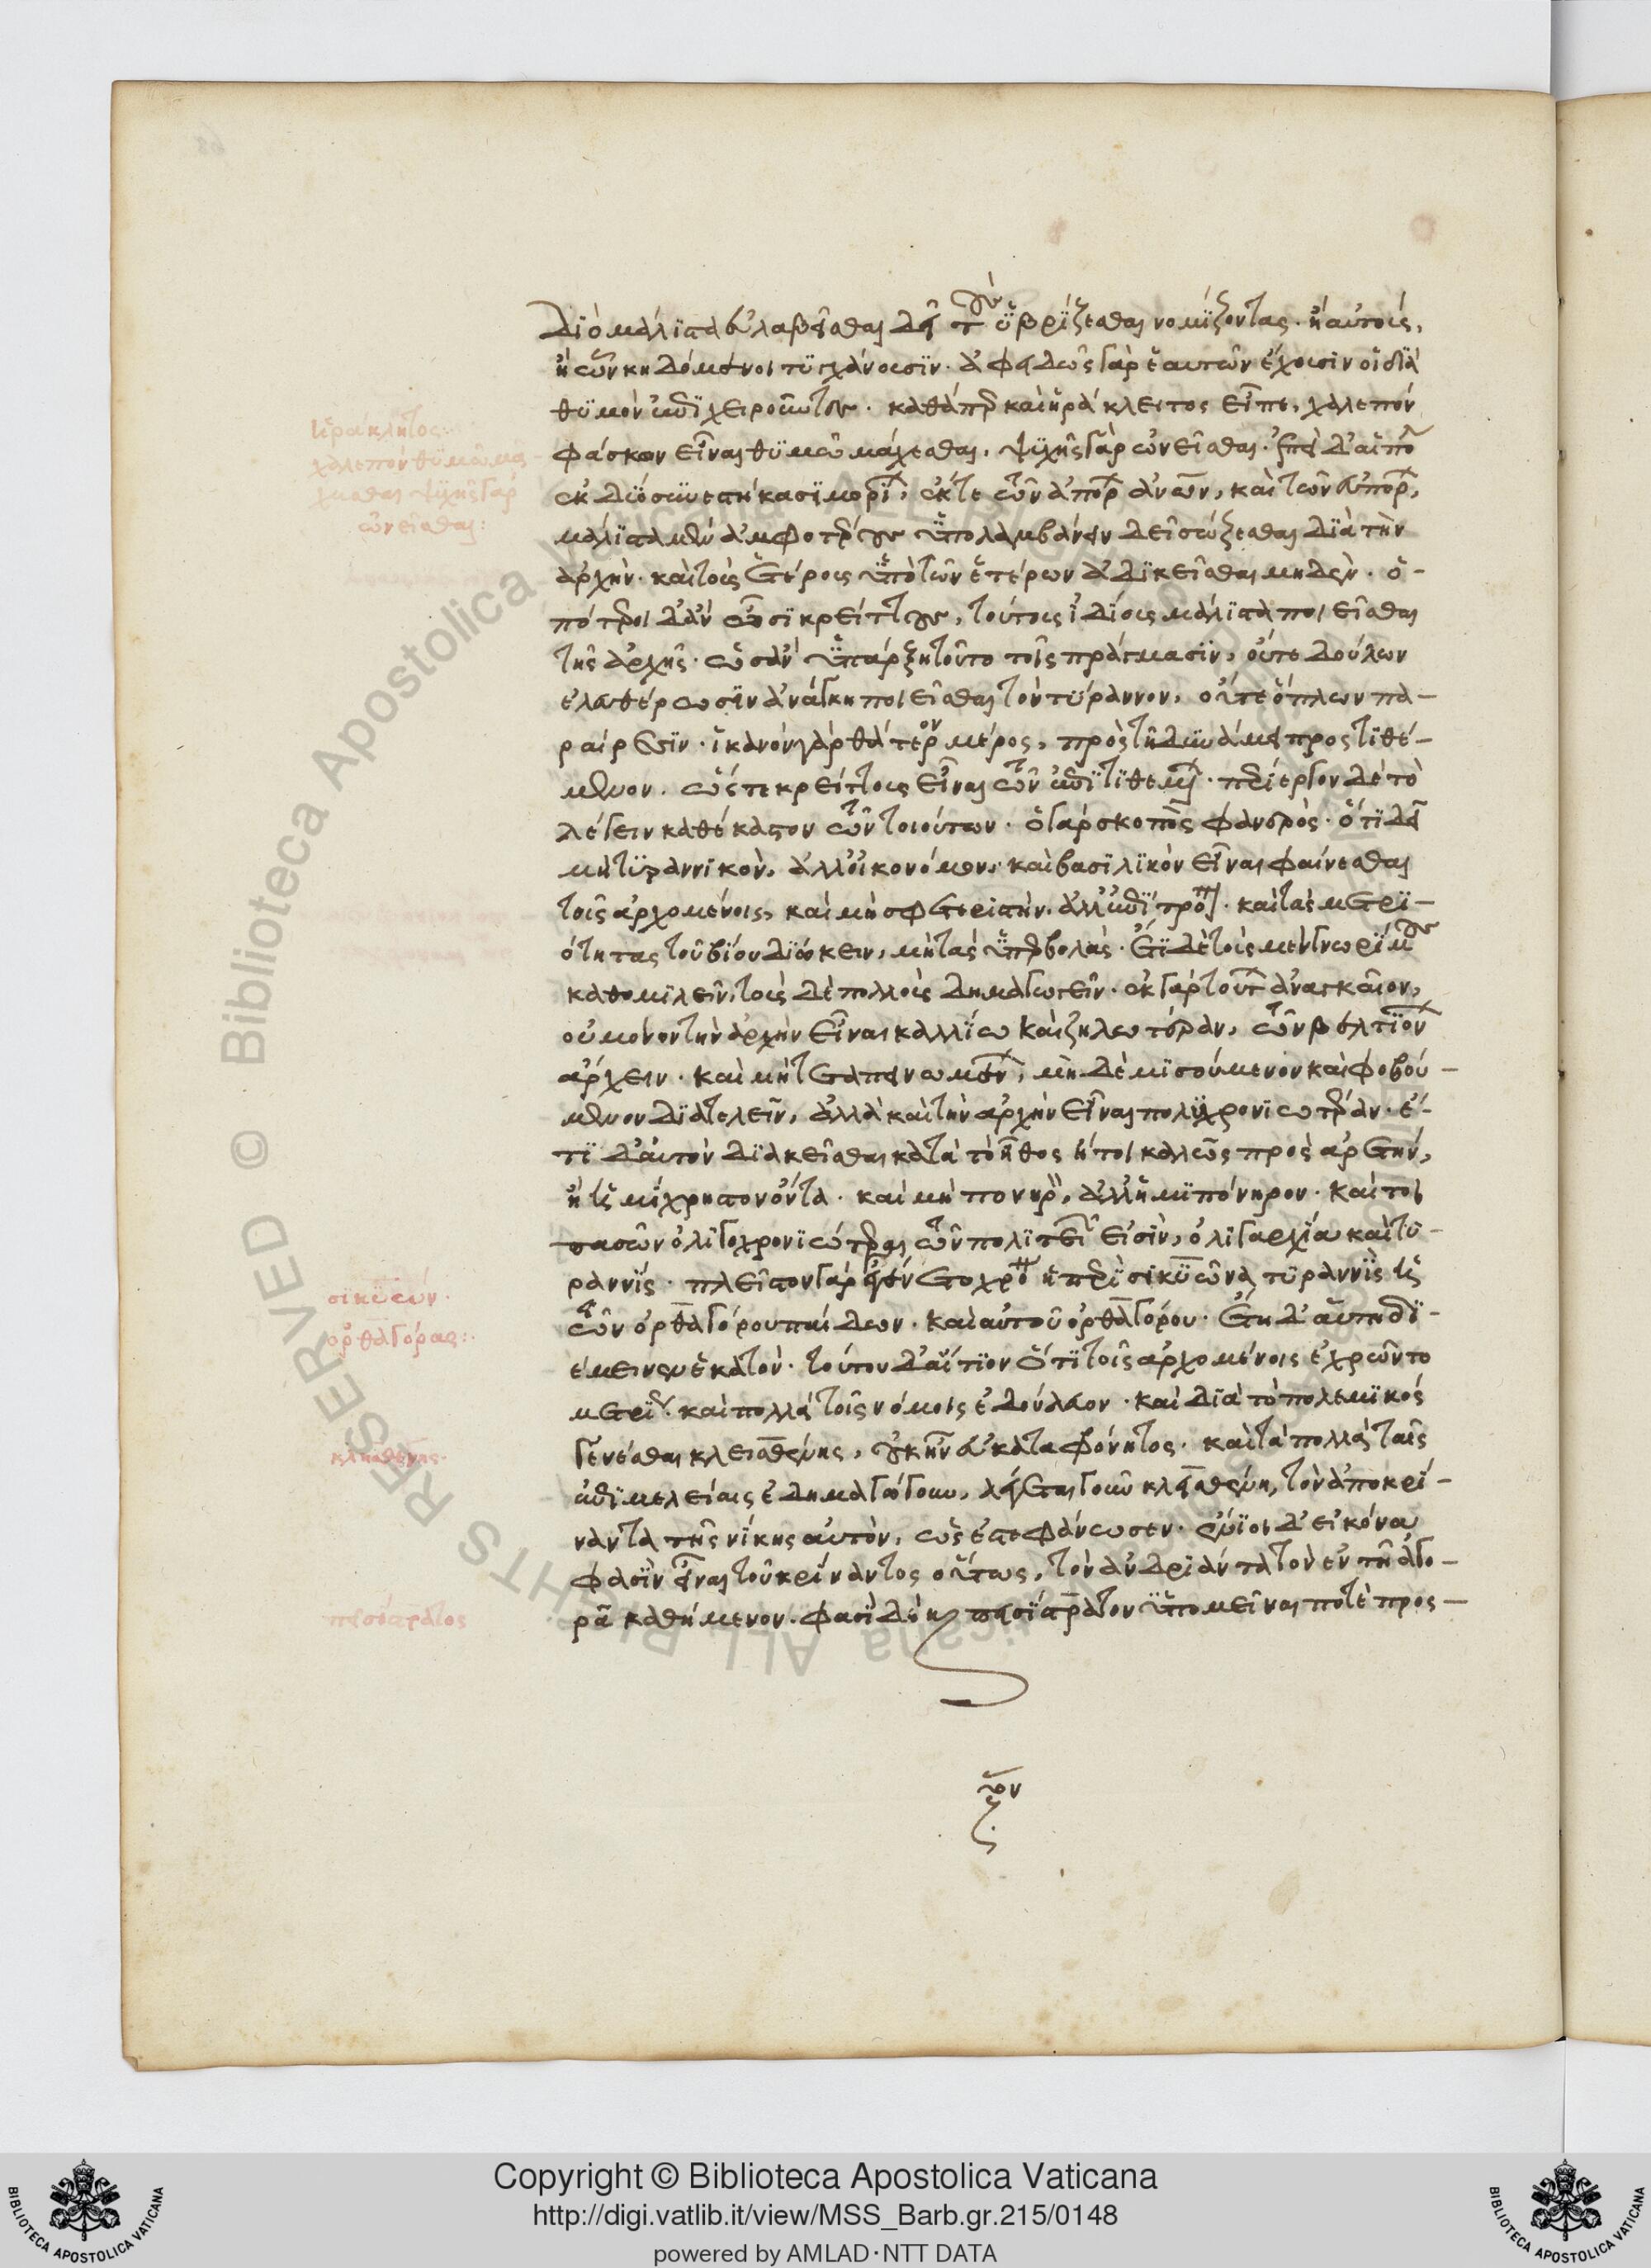 διὸ μάλιστα εὐλαβεῖσθαι δεῖ τοὺς ὑβρίζεσθαι νομίζοντας · ἢ αὐτοὺς,
ἢ ὧν κηδόμενοι τυγχάνουσιν · ἀφειδῶς γὰρ ἑαυτῶν ἔχουσιν οἱ διὰ
θυμὸν ἐπιχειροῦντες · καθάπερ καὶ ἡράκλειτος εἶπε, χαλεπὸν
Ἡράκλητος:
χαλεπὸν θυμῶ μά
χεσθαι ψυχῆς γὰρ
ὠνεῖσθαι:
φάσκων εἶναι θυμῶ μάχεσθαι, ψυχῆς γὰρ ὠνεῖσθαι · ἐπεὶ δ' αἱ πόλεις
ἐκ δύο συνεστήκασι μορίων, ἔκ τε τῶν ἀπόρων ἀνθρώπων, καὶ τῶν εὐπόρων,
μάλιστα μὲν ἀμφοτέρους ὑπολαμβάνειν δεῖ σώζεσθαι διὰ τὴν
ἀρχὴν · καὶ τοὺς ἑτέρους ὑπὸ τῶν ἑτέρων ἀδικεῖσθαι μηδὲν · ὁ-
πότεροι δ' ἂν ὦσι κρείττους, τούτους ἰδίους μάλιστα ποιεῖσθαι
τῆς ἀρχῆς · ὡς ἂν ὑπάρξη τοῦτο τοῖς πράγμασιν, οὔτε δούλων
ἐλευθέρωσιν ἀνάγκη ποιεῖσθαι τὸν τύραννον, οὔτε ὅπλων πα-
ραίρεσιν · ἱκανὸν γὰρ θάτερον μέρος, πρὸς τῆ δυνάμει προστιθέ-
μενον · ὥστε κρείττους εἶναι τῶν ἐπιτιθεμένων · περίεργον δὲ τὸ
λέγειν καθέκαστον τῶν τοιούτων · ὁ γὰρ σκοπὸς φανερός · ὅτι δεῖ
μὴ τυραννικὸν, ἀλλ' οἰκονόμον, καὶ βασιλικὸν εἶναι φαίνεσθαι
τοῖς ἀρχομένοις, καὶ μὴ σφετεριστὴν, ἀλλ' ἐπίτροπον · καὶ τὰς μετρι-
ότητας τοῦ βίου διώκειν, μὴ τὰς ὑπερβολάς · ἔτι δὲ τοὺς μὲν γνωρίμους
καθομιλεῖν, τοὺς δὲ πολλοὺς δημαγωγεῖν · ἐκ γὰρ τούτων ἀναγκαῖον,
οὐ μόνον τὴν ἀρχὴν εἶναι καλλίω καὶ ζηλωτέραν, τῶν βελτιόνων
ἄρχειν · καὶ μὴ τεταπεινωμένων, μὴ δὲ μισούμενον καὶ φοβού-
μενον διατελεῖν, ἀλλὰ καὶ τὴν ἀρχὴν εἶναι πολυχρονιωτέραν · ἔ-
τι δ' αὐτὸν διακεῖσθαι κατὰ τὸ ἦθος ἤτοι καλῶς πρὸς ἀρετήν,
ἢ ἡμίχρηστον ὄντα · καὶ μὴ πονηρὸν, ἀλλ' ἡμιπόνηρον · καί τοι
πασῶν ὀλιγοχρονιώτεραι τῶν πολιτειῶν εἰσὶν, ὀλιγαρχία καὶ τυ-
ραννίς · πλεῖστον γὰρ ἐγένετο χρόνον ἡ περὶ σικυῶνα τυραννὶς ἡ
σικυών.
τῶν ὀρθαγόρου παίδων · καὶ αὐτοῦ ὀρθαγόρου · ἔτη δ' αὕτη δι-
ὀρθαγόρας:
έμεινεν ἑκατόν · τούτου δ' αἴτιον ὅτι τοῖς ἀρχομένοις ἐχρῶντο
μετρίως · καὶ πολλὰ τοῖς νόμοις ἐδούλευον · καὶ διὰ τὸ πολεμικὸς
γενέσθαι κλεισθένης, οὐκ ἦν εὐκαταφρόνητος · καὶ τὰ πολλὰ ταῖς
κλησθένης.
ἐπιμελείαις ἐδημαγώγουν, λέγεται γοῦν κλεισθένη, τὸν ἀποκρί-
ναντα τῆς νίκης αὐτὸν, ὡς ἐστεφάνωσεν · ἔνιοι δ' εἰκόνα
φασὶν εἶναι τοῦ κρίναντος οὕτως, τὸν ἀνδριάντα τὸν ἐν τῆ ἀγο-
ρᾶ καθήμενον · φασὶ δὲ καὶ πεισίστρατον ὑπομεῖναι ποτὲ προς-
πεισίστρατος
Copyright © Biblioteca Apostolica Vaticana
http://digi.vatlib.it/view/MSS_Barb.gr.215/0148
powered by AMLAD·NTT DATA